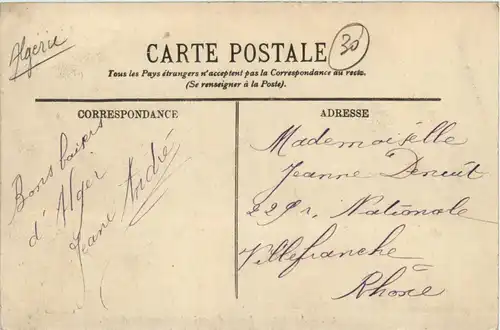 Algérie
30
CARTE POSTALE
Tous les Pays étrangers n'acceptent pas la Correspondance au recto.
(Se renseigner à la Poste).
CORRESPONDANCE
Bons baisers
d'Alger
Jeanne André
ADRESSE
Mademoiselle
Jeanne
229 r. Nationale
Villefranche
Rhône